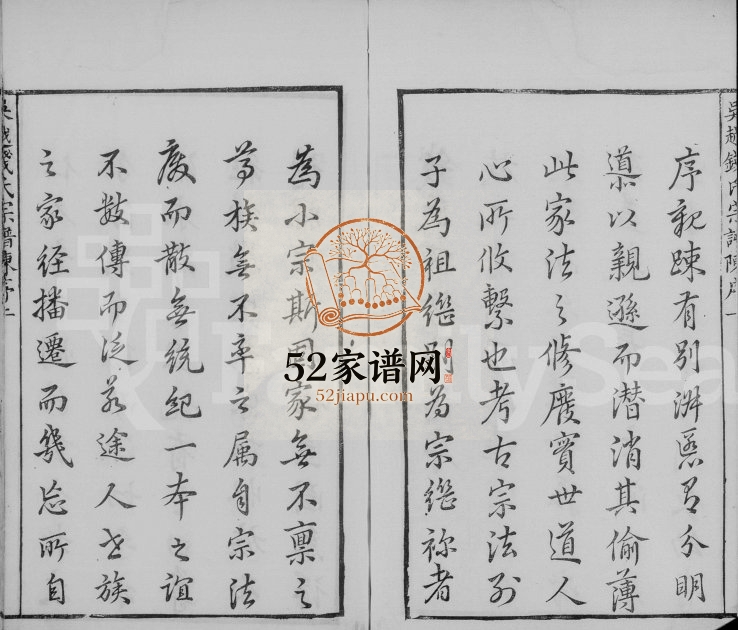 吳越錢氏宗譜陳序一
序親疎有別淋慝有分明
以親遜而潛消其偷薄
此家法之修廢實世道人
心所攸繫也考古宗法別
子為祖繼別為宗繼祢者
為小宗斯 家無不稟之
尊族無不率之属自宗法
廢而散無統紀一本之誼
不數傳而泛若途人世族
之家經播遷而幾忘所自
吳越錢氏宗譜陳序二
52家谱网
52jiapu.com
FamilySea